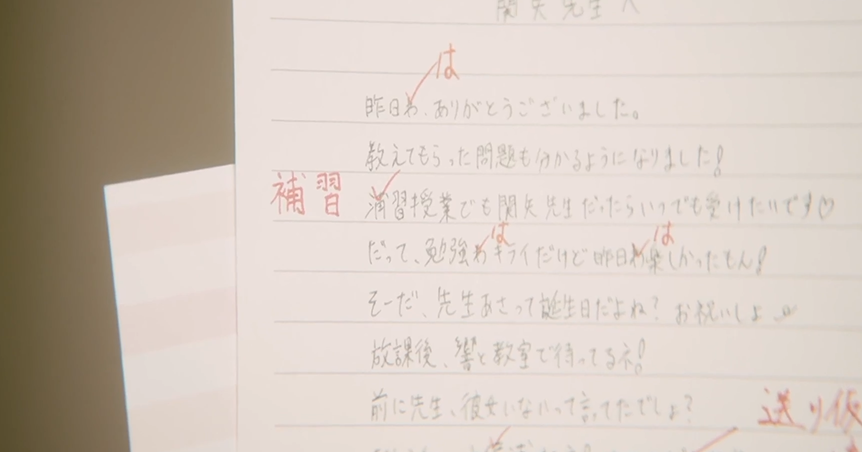 関矢先生へ
は
昨日わ、ありがとうございました。
教えてもらった問題も分かるようになりました!
補習
浦習授業でも関矢先生だったらいつでも受けたいです♡
は は
だって、勉強わキライだけど昨日わ楽しかったもん!
そーだ、先生あさって誕生日だよね? お祝いしよ
放課後、響と教室で待ってるネ!
前に先生、彼女いないって言ってたでしょ?
送り仮